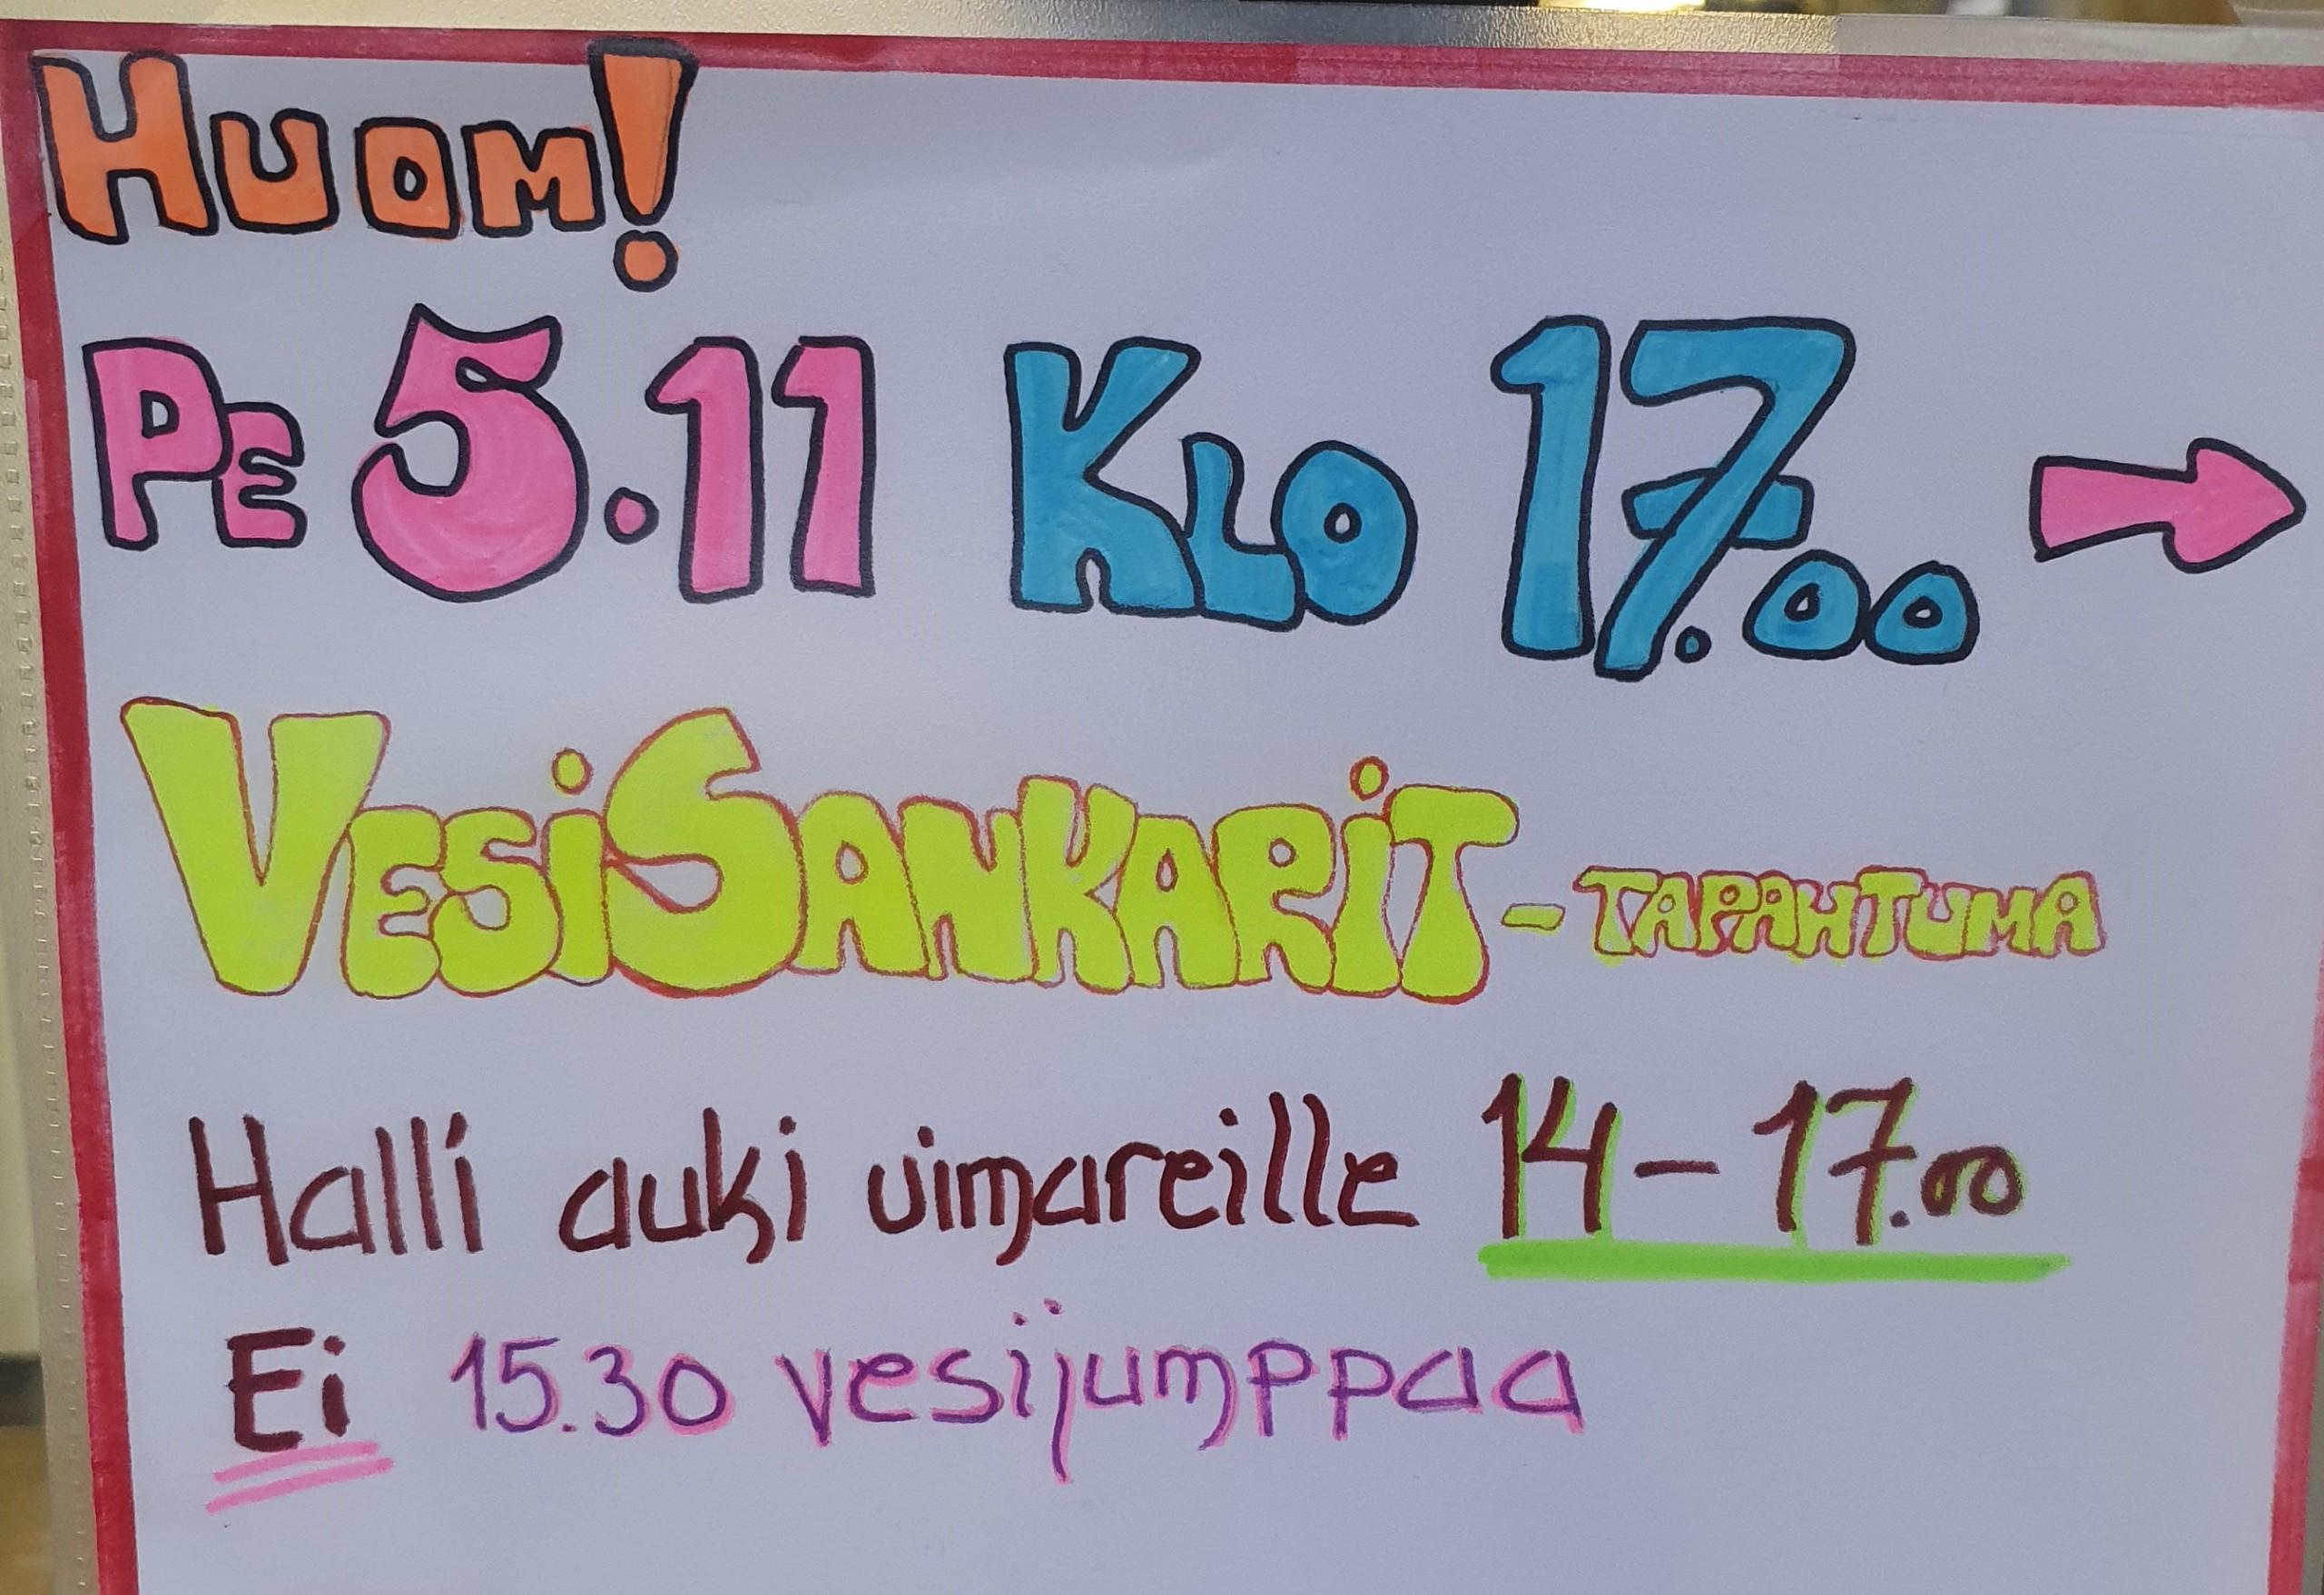 HUOM!
PE 5.11 KLO 17.00 →
VESISANKARIT - TAPAHTUMA
Halli auki uimareille 14-17.00
Ei 15.30 vesijumppaa